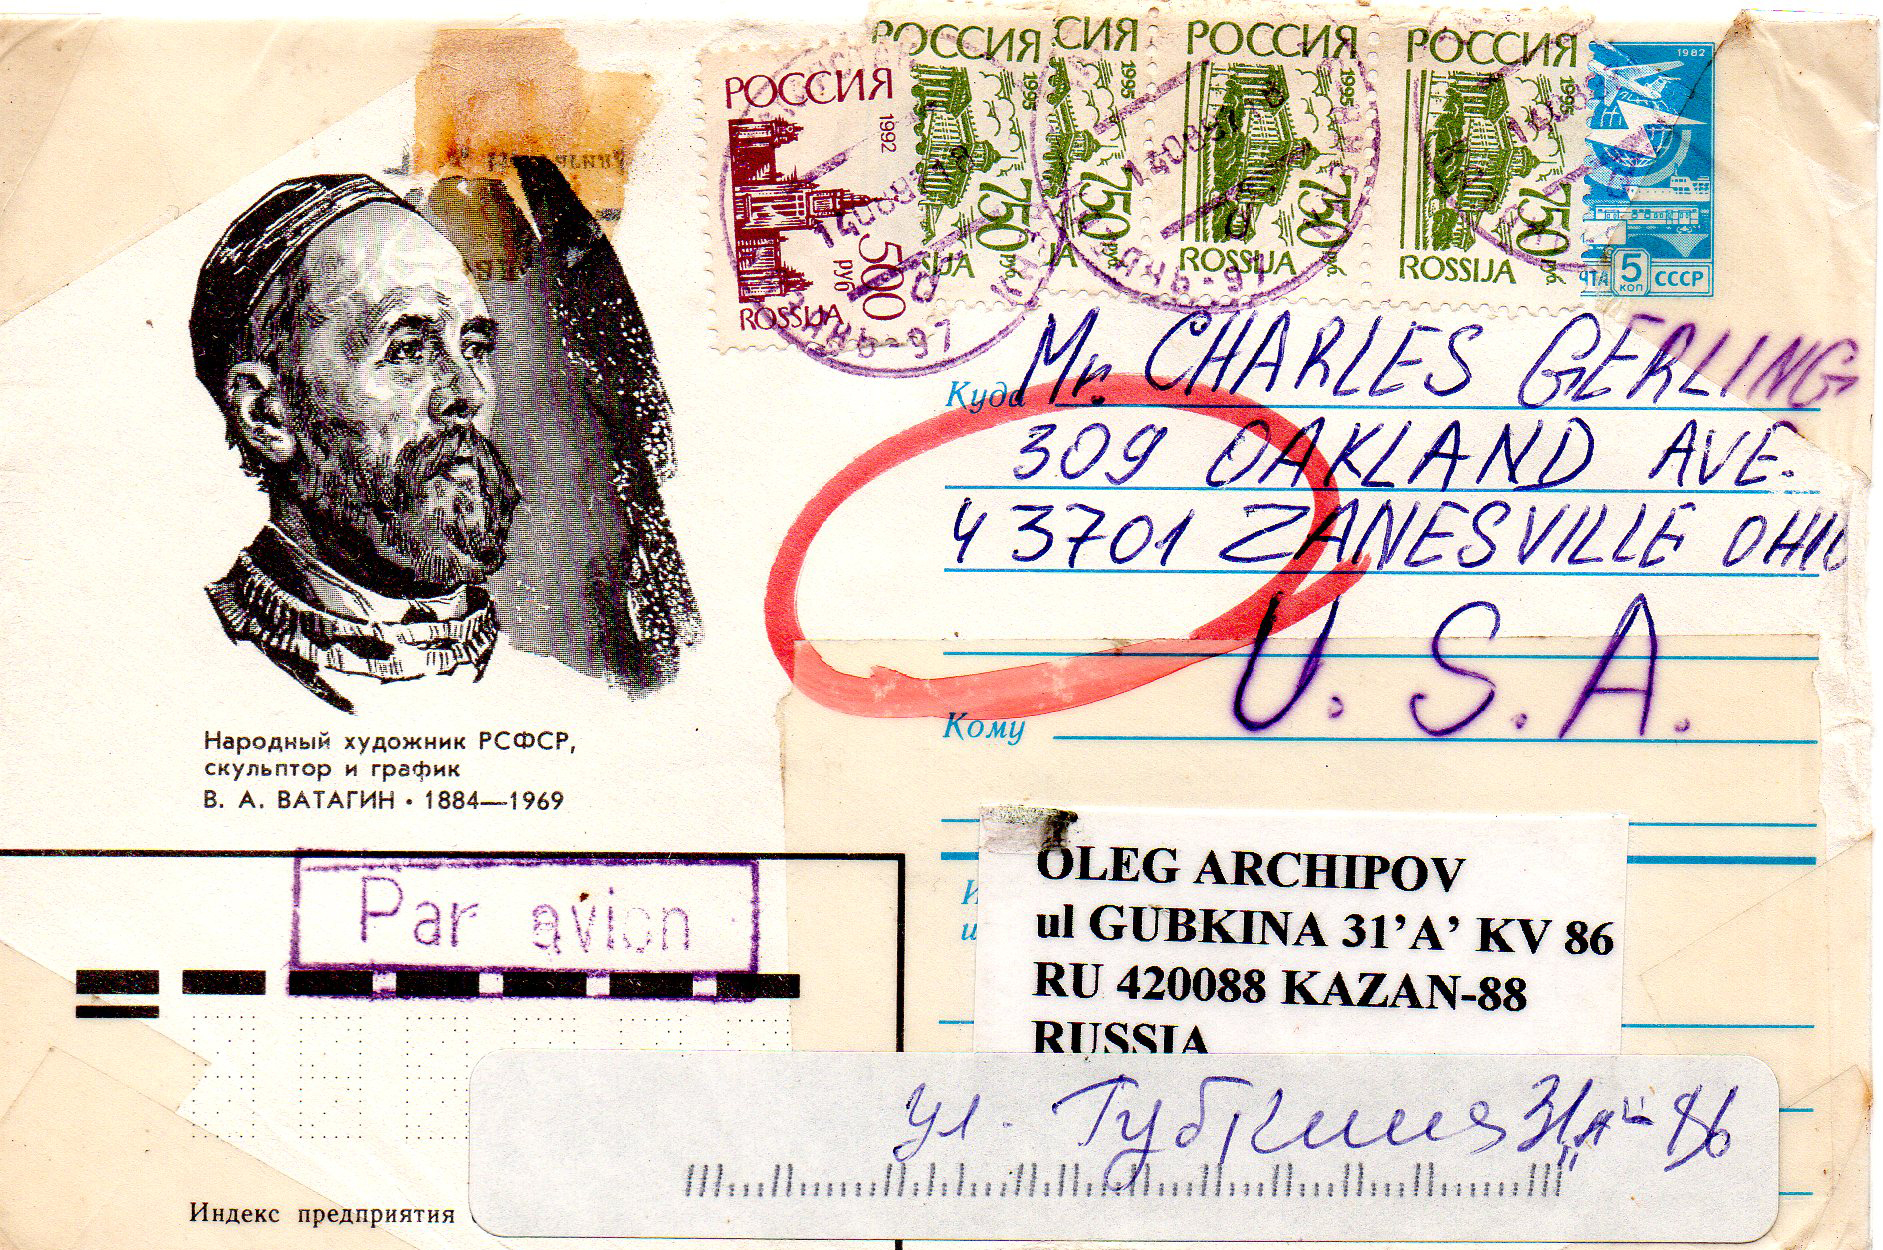 РОССИЯ
1992
500
руб
ROSSIJA
РОССИЯ
1995
750
руб
SIJA
СИЯ
1995
750
руб
JA
РОССИЯ
1995
750
руб
ROSSIJA
РОССИЯ
1995
750
руб
ROSSIJA
1982
ЧТА 5 КОП СССР
Куда Mr. CHARLES GERLING
309 OAKLAND AVE.
43701 ZANESVILLE OHIO
U.S.A.
Кому
Народный художник РСФСР,
скульптор и график
В. А. ВАТАГИН • 1884—1969
Par avion
OLEG ARCHIPOV
ul GUBKINA 31’A’ KV 86
RU 420088 KAZAN-88
RUSSIA
ул. Губкина 31"А"-86
Индекс предприятия